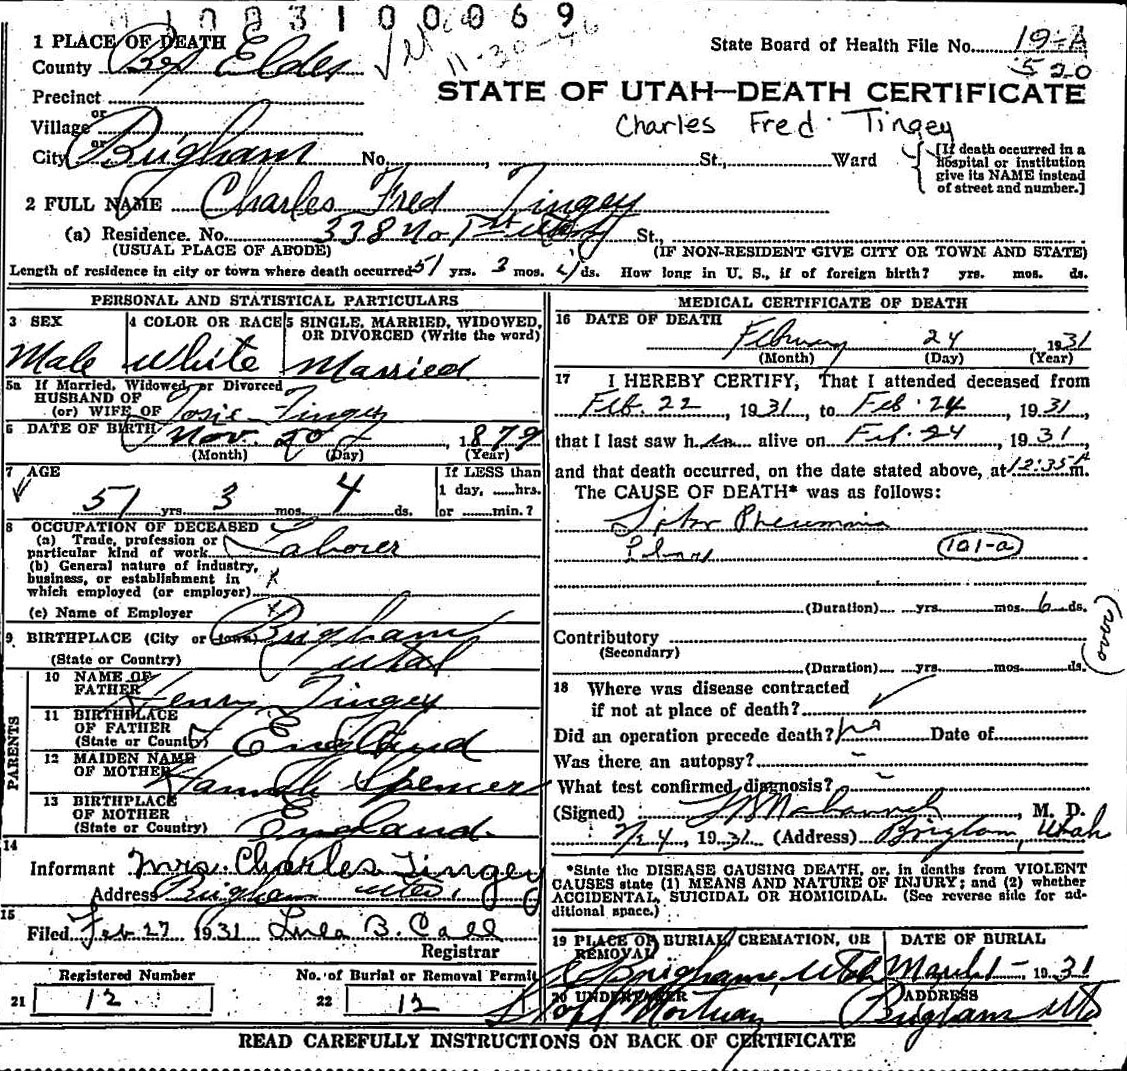 1003100069
1 PLACE OF DEATH
County Box Elder
11-30-46
State Board of Health File No. 19-A
520
Precinct
or
Village
or
City Brigham No. , St., Ward
STATE OF UTAH—DEATH CERTIFICATE
Charles Fred Tingey
[If death occurred in a
hospital or institution
give its NAME instead
of street and number.]
2 FULL NAME Charles Fred Tingey
(a) Residence. No. 338 No 1st West St.,
(USUAL PLACE OF ABODE) (IF NON-RESIDENT GIVE CITY OR TOWN AND STATE)
Length of residence in city or town where death occurred 51 yrs. 3 mos. 4 ds. How long in U. S., if of foreign birth? yrs. mos. ds.
PERSONAL AND STATISTICAL PARTICULARS
3 SEX 4 COLOR OR RACE 5 SINGLE, MARRIED, WIDOWED,
OR DIVORCED (Write the word)
Male White Married
5a If Married, Widowed, or Divorced
HUSBAND OF
(or) WIFE OF Josie Tingey
6 DATE OF BIRTH Nov. 20, 1879
(Month) (Day) (Year)
7 AGE If LESS than
1 day, hrs.
51 yrs. 3 mos. 4 ds. or min.?
8 OCCUPATION OF DECEASED
(a) Trade, profession or
particular kind of work Laborer
(b) General nature of industry,
business, or establishment in
which employed (or employer) x
(c) Name of Employer x
9 BIRTHPLACE (City or town) Brigham
(State or Country) Utah
PARENTS
10 NAME OF
FATHER Henry Tingey
11 BIRTHPLACE
OF FATHER
(State or Country) England
12 MAIDEN NAME
OF MOTHER Hannah Spencer
13 BIRTHPLACE
OF MOTHER
(State or Country) England
14
Informant Mrs. Charles Tingey
Address Brigham Utah
15
Filed Feb 27 1931 Lula B. Call
Registrar
Registered Number No. of Burial or Removal Permit
21 12 22 12
MEDICAL CERTIFICATE OF DEATH
16 DATE OF DEATH
February 24 1931
(Month) (Day) (Year)
17 I HEREBY CERTIFY, That I attended deceased from
Feb. 22, 1931, to Feb. 24, 1931,
that I last saw him alive on Feb. 24, 1931,
and that death occurred, on the date stated above, at 12:35 A m.
The CAUSE OF DEATH* was as follows:
Pneumonia
Lobar 101-a
(Duration) yrs. mos. 6 ds.
Contributory
(Secondary)
(Duration) yrs. mos. ds.
18 Where was disease contracted
if not at place of death?
Did an operation precede death? no Date of
Was there an autopsy? -
What test confirmed diagnosis? -
(Signed) , M. D.
2/24, 1931 (Address) Brigham, Utah
*State the DISEASE CAUSING DEATH, or, in deaths from VIOLENT
CAUSES state (1) MEANS AND NATURE OF INJURY; and (2) whether
ACCIDENTAL, SUICIDAL OR HOMICIDAL. (See reverse side for ad-
ditional space.)
19 PLACE OF BURIAL, CREMATION, OR
REMOVAL DATE OF BURIAL
Brigham, Utah March 1- 1931
20 UNDERTAKER ADDRESS
Mortuary Brigham Uta
READ CAREFULLY INSTRUCTIONS ON BACK OF CERTIFICATE